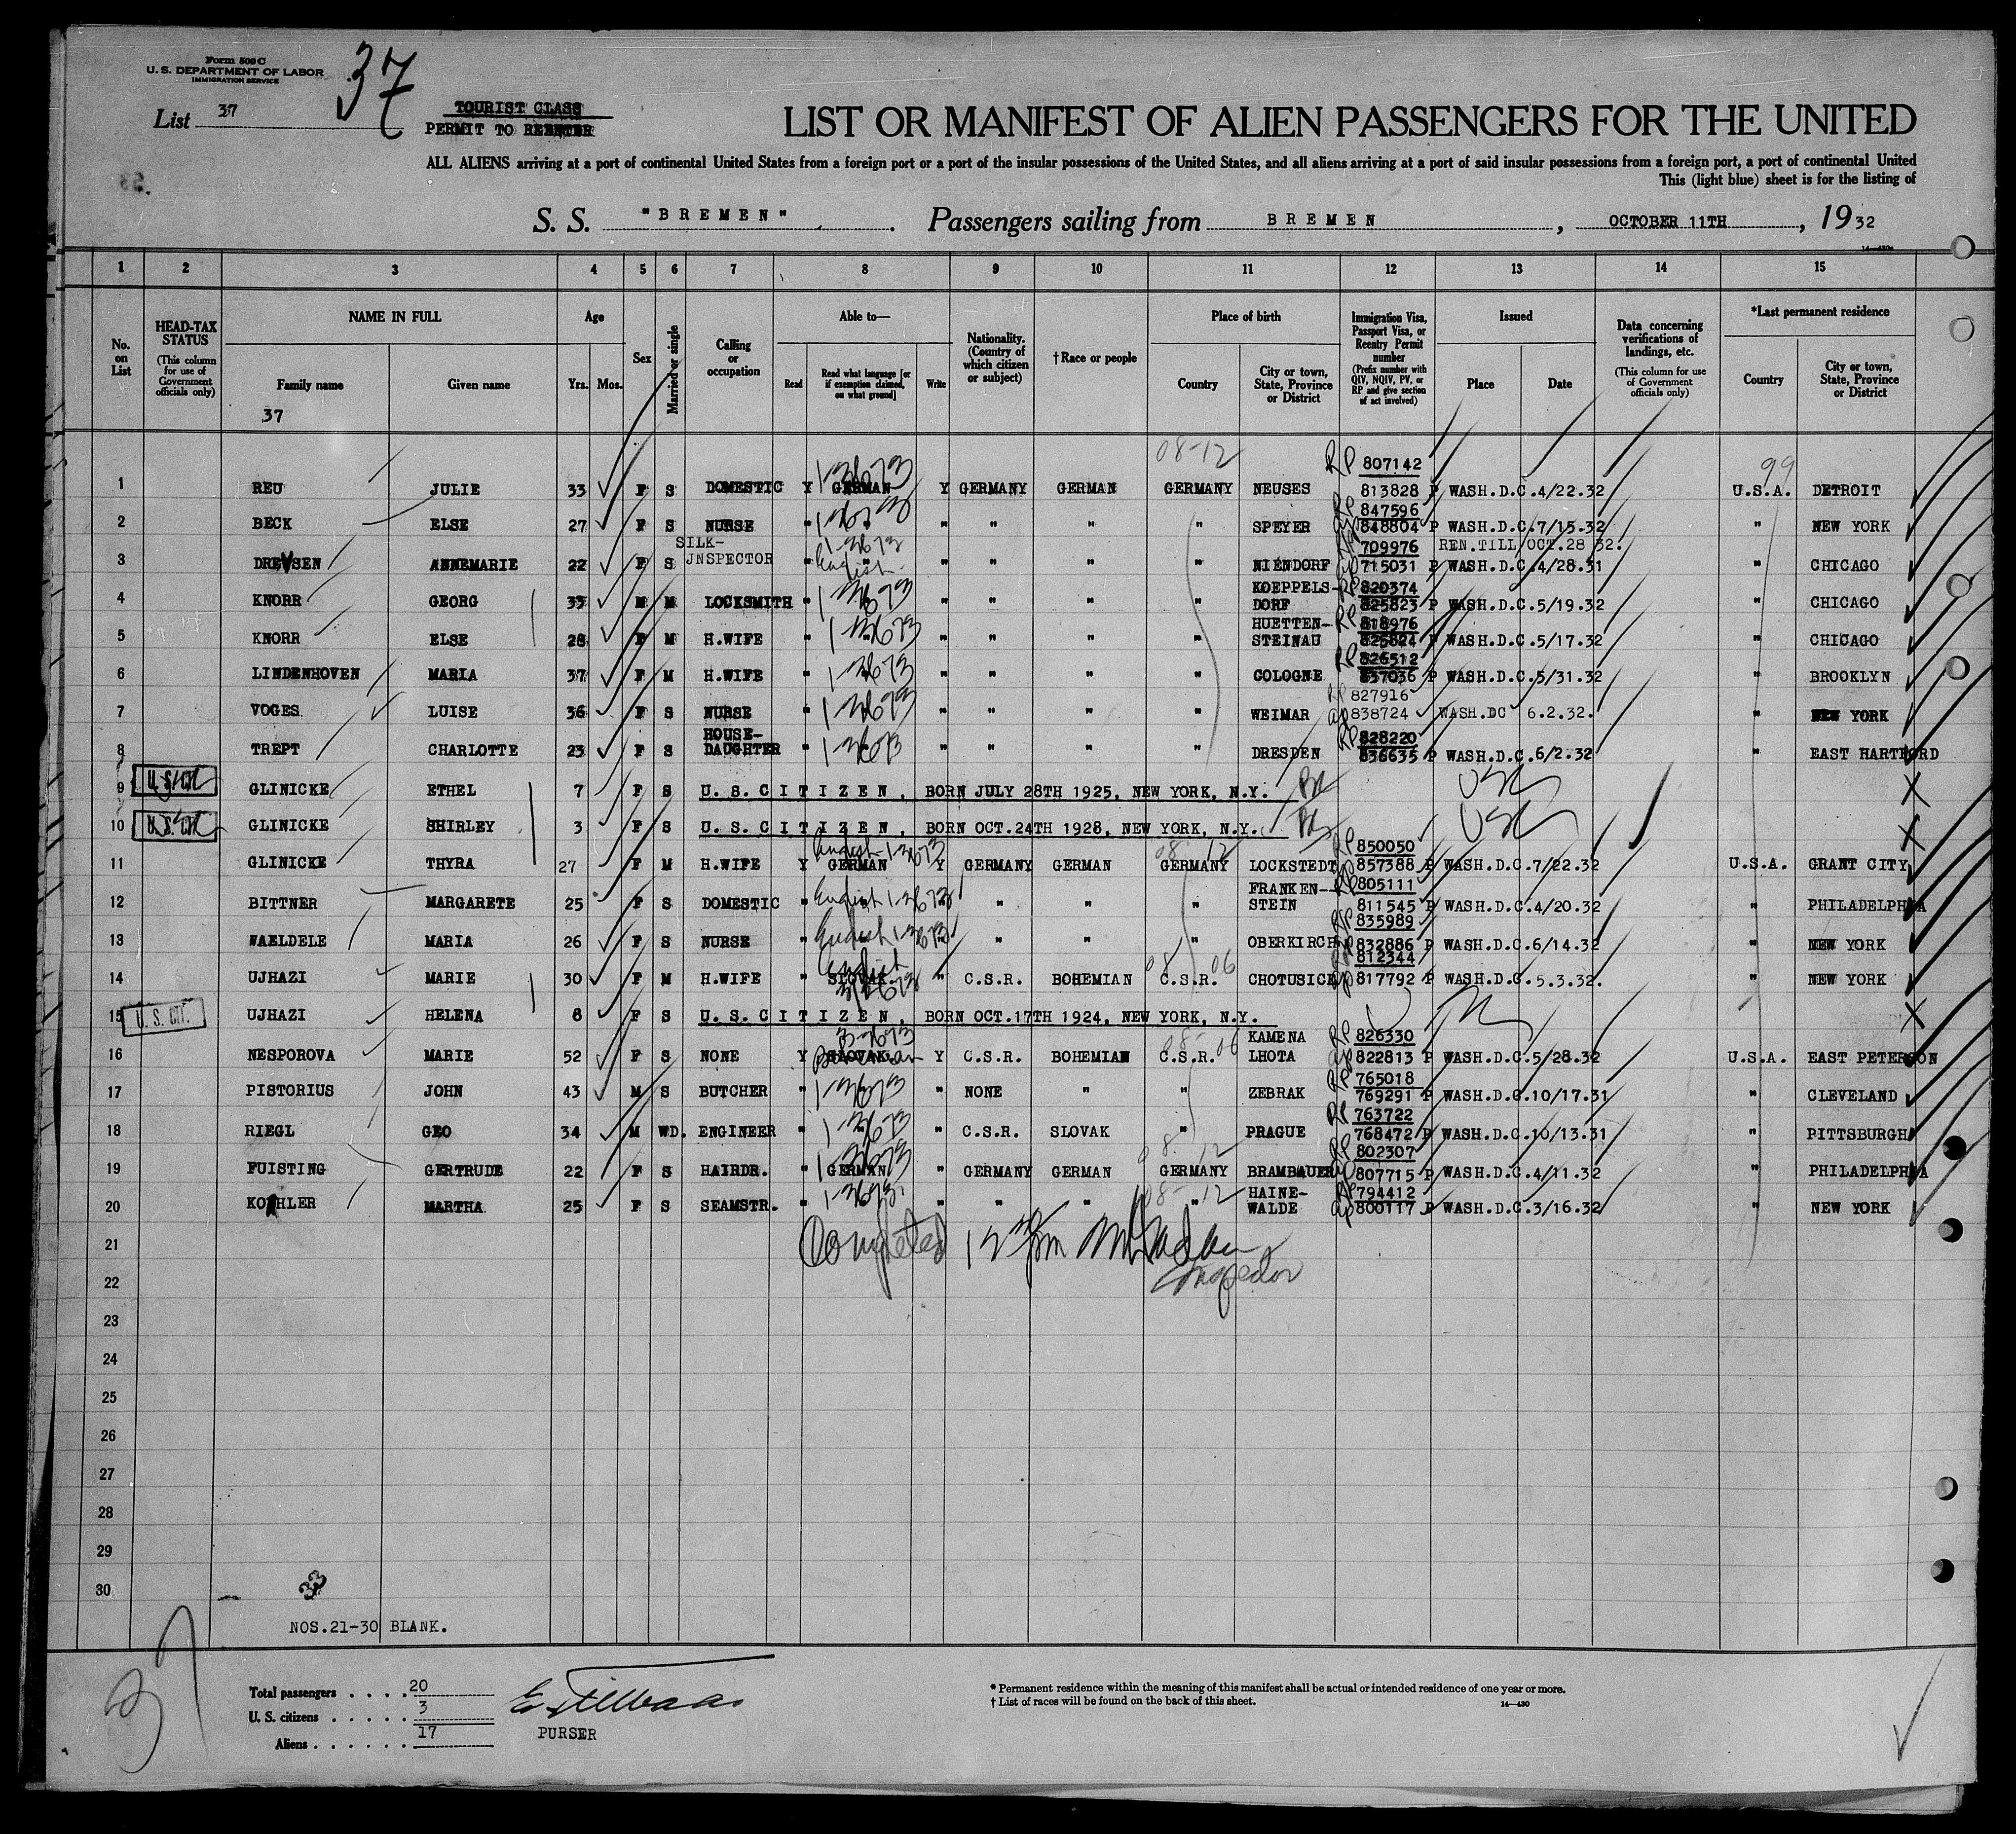 Form 500 C
U. S. DEPARTMENT OF LABOR
IMMIGRATION SERVICE
37
List 37
TOURIST CLASS
PERMIT TO REENTER
LIST OR MANIFEST OF ALIEN PASSENGERS FOR THE UNITED
ALL ALIENS arriving at a port of continental United States from a foreign port or a port of the insular possessions of the United States, and all aliens arriving at a port of said insular possessions from a foreign port, a port of continental United
This (light blue) sheet is for the listing of
S. S. "BREMEN". Passengers sailing from BREMEN, OCTOBER 11TH, 1932
1 2 3 4 5 6 7 8 9 10 11 12 13 14 15
No. on List
HEAD-TAX STATUS (This column for use of Government officials only)
NAME IN FULL Family name Given name
Age Yrs. Mos.
Sex
Married or single
Calling or occupation
Able to— Read Read what language [or if exemption claimed, on what ground] Write
Nationality. (Country of which citizen or subject)
†Race or people
Place of birth Country City or town, State, Province or District
Immigration Visa, Passport Visa, or Reentry Permit number (Prefix number with QIV, NQIV, PV, or RP and give section of act involved)
Issued Place Date
Data concerning verifications of landings, etc. (This column for use of Government officials only)
*Last permanent residence Country City or town, State, Province or District
37
08-12 RP 807142 99
1 REU JULIE 33 F S DOMESTIC Y GERMAN 1-3673 Y GERMANY GERMAN GERMANY NEUSES 813828 P WASH.D.C. 4/22.32 U.S.A. DETROIT
RP 847596
2 BECK ELSE 27 F S NURSE " " " " " " SPEYER 848804 P WASH.D.C. 7/15.32 " NEW YORK
SILK- 1-3673 709976 REN.TILL OCT.28 32.
3 DREVSEN ANNEMARIE 22 F S JNSPECTOR " English " " " " NIENDORF 715031 P WASH.D.C. 4/28.31 " CHICAGO
KOEPPELS- RP 820374
4 KNORR GEORG 33 M M LOCKSMITH " 1-3673 " " " " DORF 825823 P WASH.D.C. 5/19.32 " CHICAGO
HUETTEN- RP 818976
5 KNORR ELSE 28 F M H.WIFE " 1-3673 " " " " STEINAU 825824 P WASH.D.C. 5/17.32 " CHICAGO
RP 826512
6 LINDENHOVEN MARIA 37 F M H.WIFE " 1-3673 " " " " COLOGNE 837036 P WASH.D.C. 5/31.32 " BROOKLYN
RP 827916
7 VOGES LUISE 36 F S NURSE " 1-3673 " " " " WEIMAR 838724 WASH.DC 6.2.32. " NEW YORK
HOUSE- RP 828220
8 TREPT CHARLOTTE 23 F S DAUGHTER " 1-3673 " " " " DRESDEN 836635 P WASH.D.C. 6/2.32 " EAST HARTFORD
9 U.S. Cit. GLINICKE ETHEL 7 F S U. S. C I T I Z E N , BORN JULY 28TH 1925, NEW YORK, N.Y. USC X
10 U.S. Cit. GLINICKE SHIRLEY 3 F S U. S. C I T I Z E N , BORN OCT.24TH 1928, NEW YORK, N.Y. USC X
English 1-3673 08-12 RP 850050
11 GLINICKE THYRA 27 F M H.WIFE Y GERMAN Y GERMANY GERMAN GERMANY LOCKSTEDT 857388 P WASH.D.C. 7/22.32 U.S.A. GRANT CITY
FRANKEN- RP 805111
12 BITTNER MARGARETE 25 F S DOMESTIC " English 1-3673 " " " " STEIN 811545 P WASH.D.C. 4/20.32 " PHILADELPHIA
RP 835989
13 WAELDELE MARIA 26 F S NURSE " English 1-3673 " " " " OBERKIRCH 832886 P WASH.D.C. 6/14.32 " NEW YORK
English 08 06 812344
14 UJHAZI MARIE 30 F M H.WIFE " SLOVAK. " C.S.R. BOHEMIAN C.S.R. CHOTUSICE 817792 P WASH.D.C. 5.3.32. " NEW YORK
15 U. S. CIT. UJHAZI HELENA 8 F S U. S. C I T I Z E N , BORN OCT.17TH 1924, NEW YORK, N.Y. X
3-3673 08-06 KAMENA RP 826330
16 NESPOROVA MARIE 52 F S NONE Y SLOVAK. Bohemian Y C.S.R. BOHEMIAN C.S.R. LHOTA 822813 P WASH.D.C. 5/28.32 U.S.A. EAST PETERSON
RP 765018
17 PISTORIUS JOHN 43 M S BUTCHER " 1-3673 " NONE " " ZEBRAK 769291 P WASH.D.C. 10/17.31 " CLEVELAND
RP 763722
18 RIEGL GEO 34 M WD. ENGINEER " 1-3673 " C.S.R. SLOVAK " PRAGUE 768472 P WASH.D.C. 10/13.31 " PITTSBURGH
08-12 RP 802307
19 FUISTING GERTRUDE 22 F S HAIRDR. " GERMAN 1-3673 " GERMANY GERMAN GERMANY BRAMBAUER 807715 P WASH.D.C. 4/11.32 " PHILADELPHIA
08-12 HAINE- RP 794412
20 KOEHLER MARTHA 25 F S SEAMSTR. " 1-3673 " " " " WALDE 800117 P WASH.D.C. 3/16.32 " NEW YORK
21 Completed
22 Inspector
23
24
25
26
27
28
29
30
33
NOS.21-30 BLANK.
37
Total passengers . . . . 20
U. S. citizens . . . . . 3
Aliens . . . . . . 17
PURSER
* Permanent residence within the meaning of this manifest shall be actual or intended residence of one year or more.
† List of races will be found on the back of this sheet. 14—430